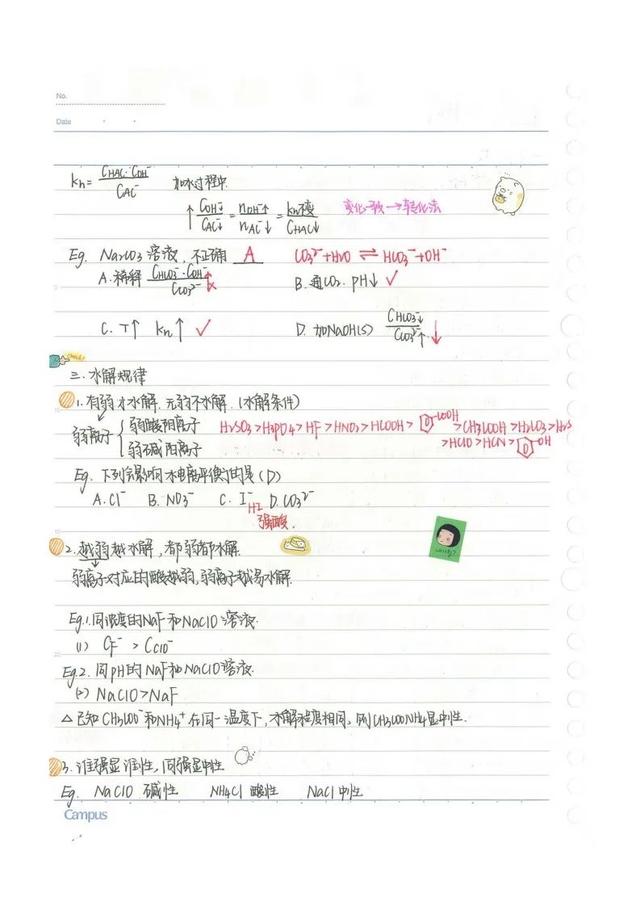 No.
Date
Kh = CHAC·COH⁻ / CAC⁻ 加水过程中
↑ COH⁻↓ / CAC⁻↓ = nOH⁻↑ / nAC⁻↓ = Kh不变 / CHAC↓ 变化一致→转化法
Eg. Na2CO3溶液,不正确 A CO3²⁻+H2O ⇌ HCO3⁻+OH⁻
A.稀释 CHCO3⁻·COH⁻ / CCO3²⁻ ↑ × B.通CO2. pH↓ ✓
C. T↑ Kh↑ ✓ D. 加NaOH(s) CHCO3⁻↓ / CCO3²⁻↑ ↓
三.水解规律
1.有弱才水解,无弱不水解.(水解条件)
弱离子 { 弱酸阴离子 H2SO3>H3PO4>HF>HNO2>HCOOH> -COOH >CH3COOH>H2CO3>H2S
弱碱阳离子 >HClO>HCN> -OH
Eg. 下列会影响水电离平衡的是(D)
A.Cl⁻ B. NO3⁻ C. I⁻ D.CO3²⁻
HI
强酸.
2.越弱越水解,都弱都水解.
弱离子对应的酸越弱,弱离子越易水解.
Eg.1.同浓度的NaF和NaClO溶液.
(1) CF⁻ > CClO⁻
Eg.2. 同pH的NaF和NaClO溶液.
(2) NaClO>NaF
△已知CH3COO⁻和NH4⁺在同一温度下,水解程度相同,则CH3COONH4显中性.
3.谁强显谁性,同强显中性
Eg. NaClO 碱性 NH4Cl 酸性 NaCl 中性
Campus